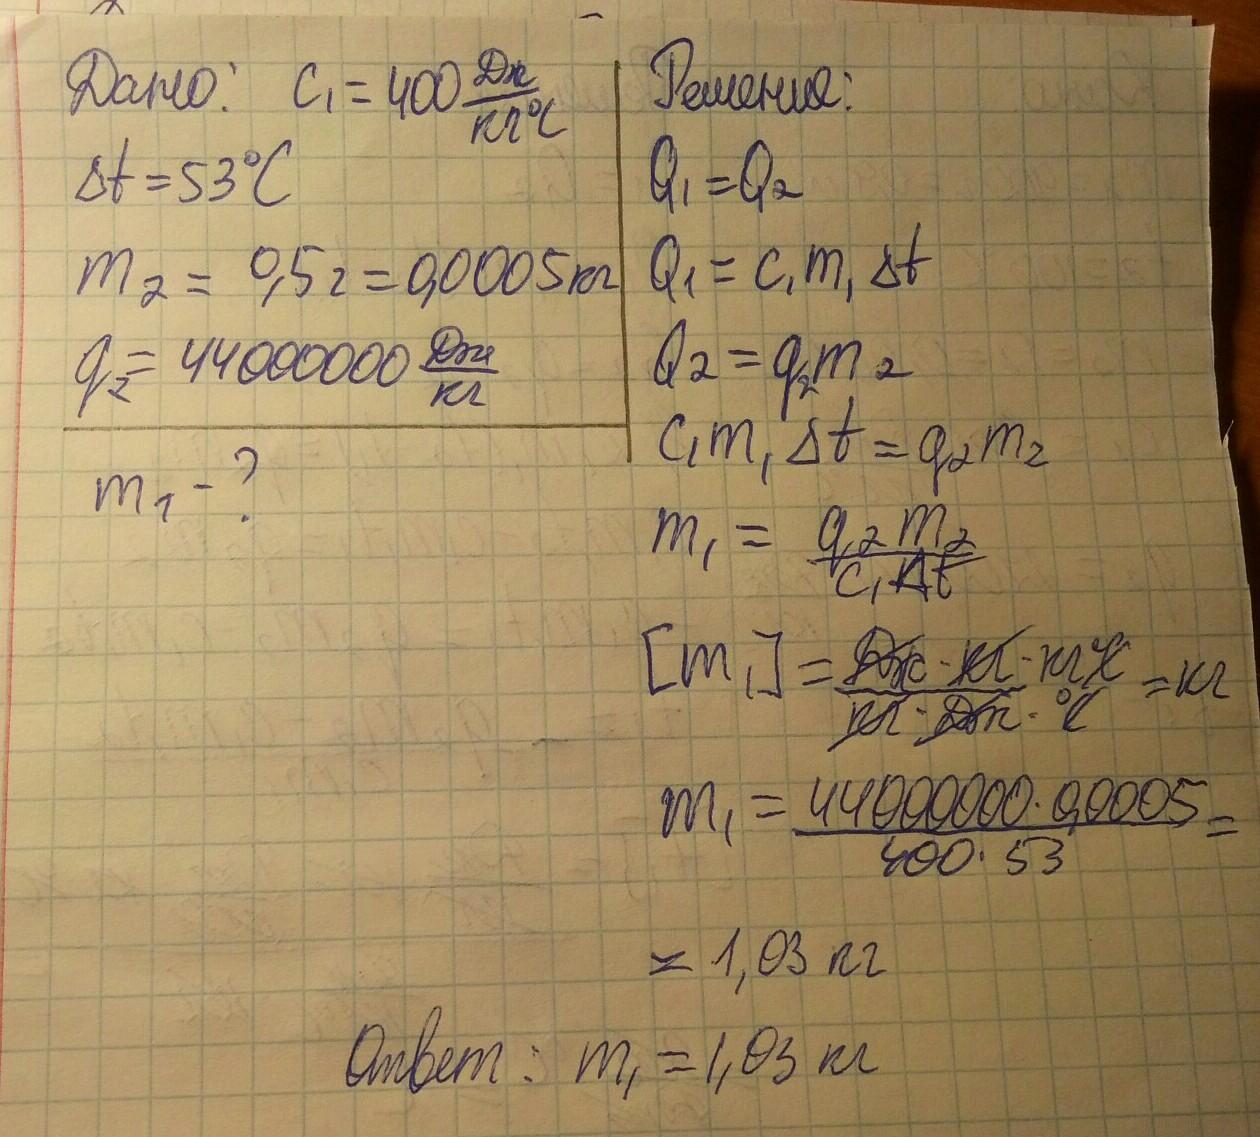 Дано: c₁ = 400 Дж/кг°C
Δt = 53°C
m₂ = 0,5 г = 0,0005 кг
q₂ = 44000000 Дж/кг
m₁ - ?
Решение:
Q₁ = Q₂
Q₁ = c₁m₁Δt
Q₂ = q₂m₂
c₁m₁Δt = q₂m₂
m₁ = q₂m₂/c₁Δt
[m₁] = Дж · кг · кг°C/кг · Дж · °C = кг
m₁ = 44000000 · 0,0005/400 · 53 =
≈ 1,03 кг
Ответ: m₁ = 1,03 кг